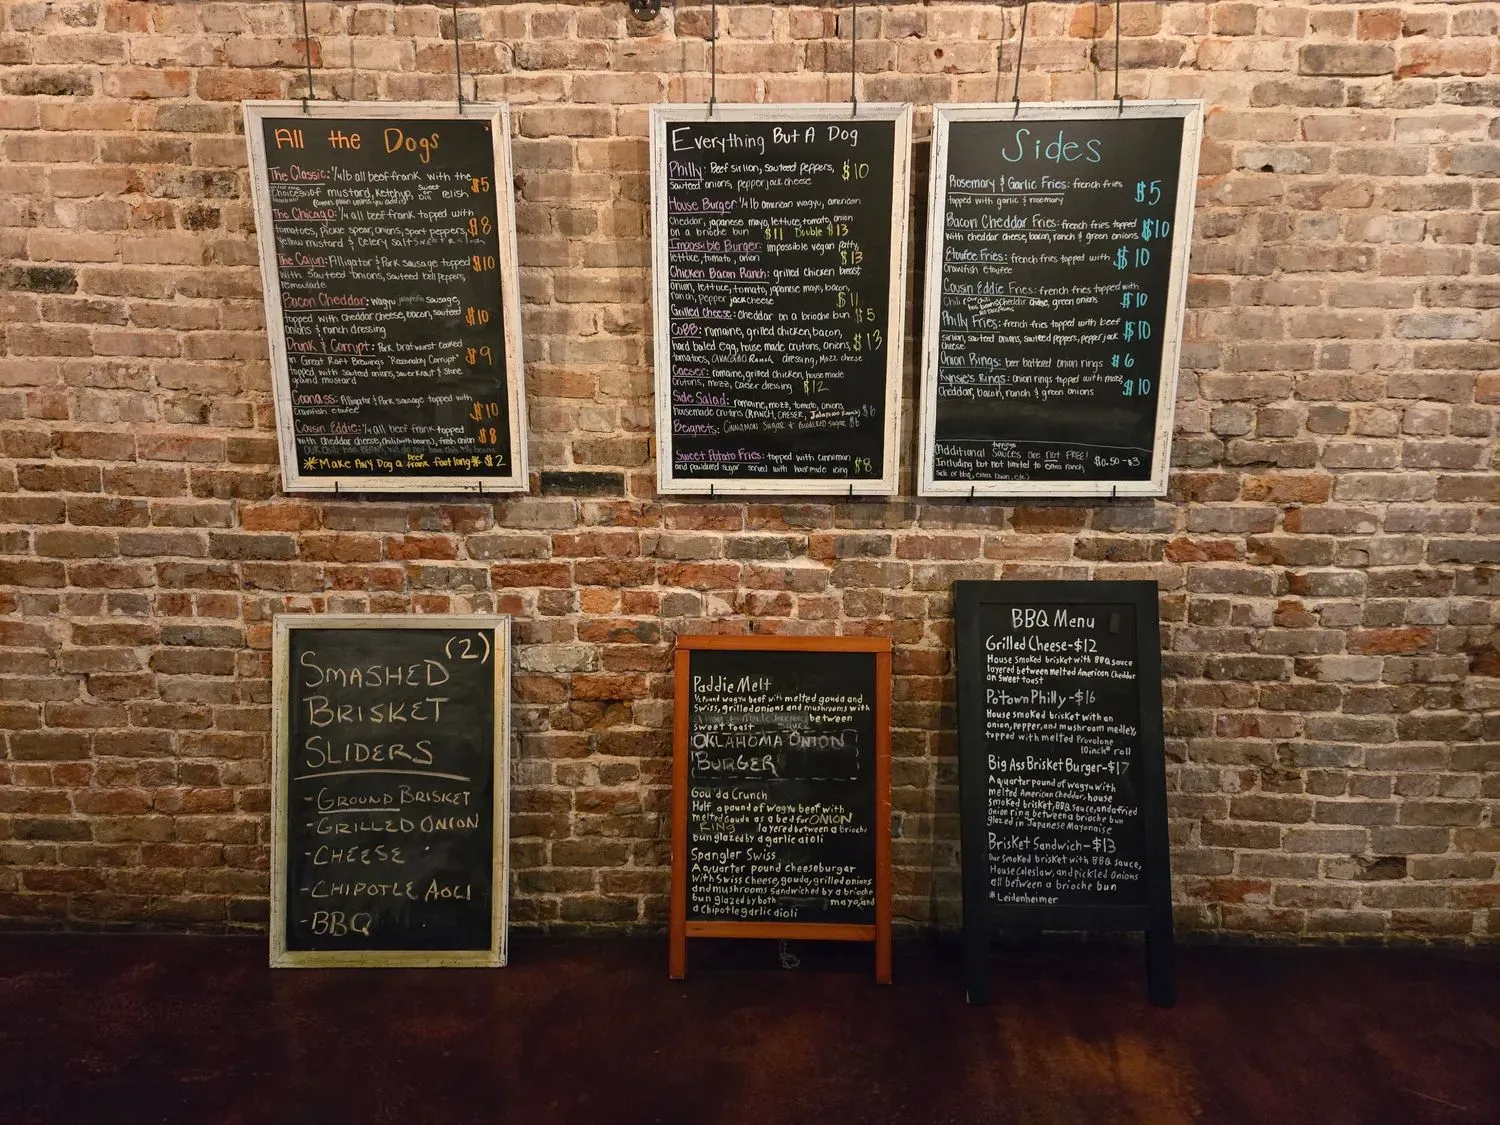 All the Dogs
The Classic: 1/4 lb all beef frank with the
choices of mustard, ketchup, sweet relish $5
The Chicago: 1/4 all beef frank topped with
tomatoes, pickle spear, onions, sport peppers, $8
yellow mustard & celery salt
The Cajun: Alligator & Pork sausage topped $10
with sauteed onions, sauteed bell peppers,
remoulade
Bacon Cheddar: Wagyu jalapeño sausage,
topped with cheddar cheese, bacon, sauteed $10
onions & ranch dressing
Drunk & Corrupt: Pork bratwurst cooked
in Great Raft Brewing's "Reasonably Corrupt" $9
topped with sauteed onions, sauerkraut & stone
ground mustard
Coonass: Alligator & Pork sausage topped with
crawfish etoufee $10
Cousin Eddie: 1/4 all beef frank topped
with cheddar cheese, chili (with beans), fresh onion $8
*Make Any Dog a beef frank footlong* $2
Everything But A Dog
Philly: Beef sirlion, sauteed peppers, $10
sauteed onions, pepper jack cheese
House Burger 1/4 lb american wagyu, american
cheddar, japanese mayo, lettuce, tomato, onion
on a brioche bun $11 Double $13
Impossible Burger: impossible vegan patty,
lettuce, tomato, onion $13
Chicken Bacon Ranch: grilled chicken breast
onion, lettuce, tomato, japanese mayo, bacon,
ranch, pepper jack cheese $11
Grilled Cheese: cheddar on a brioche bun $5
CoBB: romaine, grilled chicken, bacon,
hard boiled egg, house made crutons, onions, $13
tomatoes, avacado Ranch dressing, mozz cheese
Caeser: romaine, grilled chicken, house made
crutons, mozz, caeser dressing $12
Side Salad: romaine, mozz, tomato, onions,
housemade crutons (RANCH, CAESER, Jalapeno Ranch) $6
Beignets: Cinnamon Sugar & Powdered sugar $6
Sweet Potato Fries: topped with cinnamon
and powdered sugar served with housemade icing $8
Sides
Rosemary & Garlic Fries: french fries $5
topped with garlic & rosemary
Bacon Cheddar Fries: french fries topped $10
with cheddar cheese, bacon, ranch & green onions
Etoufee Fries: french fries topped with $10
crawfish etoufee
Cousin Eddie Fries: french fries topped with
chili cheddar cheese, green onions $10
Philly Fries: french fries topped with beef $10
sirlion, sauteed onions, sauteed peppers, pepper jack
cheese
Onion Rings: beer battered onion rings $6
Kynsie's Rings: onion rings topped with mozz, $10
cheddar, bacon, ranch & green onions
toppings
Additional Sauces are not FREE!
Including but not limited to extra ranch $0.50-$3
side of bbq, extra bacon, etc)
(2)
SMASHED
BRISKET
SLIDERS
-GROUND BRISKET
-GRILLED ONION
-CHEESE
-CHIPOTLE AOLI
-BBQ
Paddie Melt
1/2 Pound wagyu beef with melted gouda and
Swiss, grilled onions and mushrooms with
between
sweet toast
OKLAHOMA ONION
BURGER
Gouda Crunch
Half a pound of wagyu beef with
melted Gouda as a bed for ONION
RING layered between a brioche
bun glazed by a garlic aioli
Spangler Swiss
A quarter pound cheeseburger
with Swiss cheese, gouda, grilled onions
and mushrooms sandwiched by a brioche
bun glazed by both mayo, and
a Chipotle garlic aioli
BBQ Menu
Grilled Cheese-$12
House smoked brisket with BBQ sauce
layered between melted American Cheddar
on Sweet toast
Potown Philly-$16
House smoked brisket with an
onion, pepper, and mushroom medley,
topped with melted Provolone
10inch* roll
Big Ass Brisket Burger-$17
A quarter pound of wagyu with
melted American Cheddar, house
smoked brisket, BBQ sauce, and a fried
onion ring between a brioche bun
glazed in Japanese Mayonaise
Brisket Sandwich-$13
Our smoked brisket with BBQ sauce,
House coleslaw, and pickled onions
all between a brioche bun
*Leidenheimer